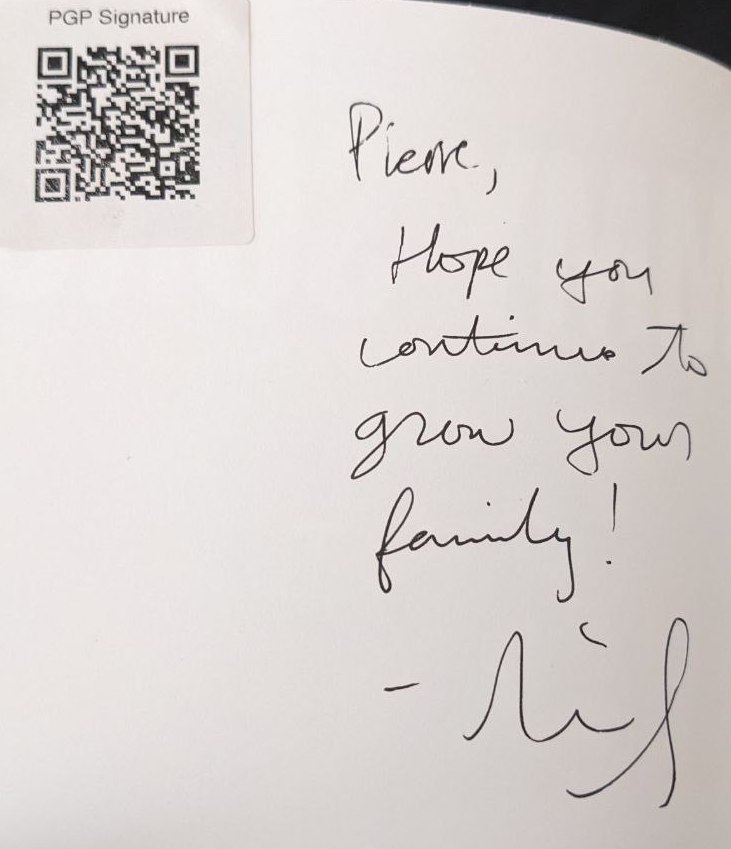 PGP Signature
Pierre,
Hope you
continue to
grow your
family!